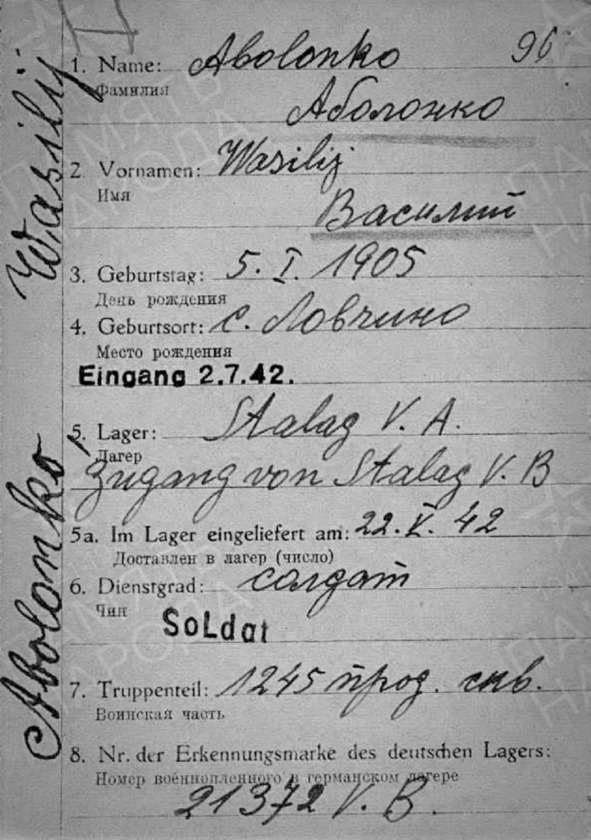 Abolonko Wasilij
1. Name: Abolonko 96
Фамилия
Аболонко
2. Vornamen: Wasilij
Имя
Василий
3. Geburtstag: 5. I. 1905
День рождения
4. Geburtsort: с. Ловчино
Место рождения
Eingang 2.7.42.
5. Lager: Stalag V. A.
Лагер
Zugang von Stalag V. B
5a. Im Lager eingeliefert am: 22. V. 42
Доставлен в лагер (число)
6. Dienstgrad: солдат
Чин
Soldat
7. Truppenteil: 1245 прод. скв.
Воинская часть
8. Nr. der Erkennungsmarke des deutschen Lagers:
Номер военнопленного в германском лагере
21372 V. B.
ПАМЯТЬ
НАРОДА